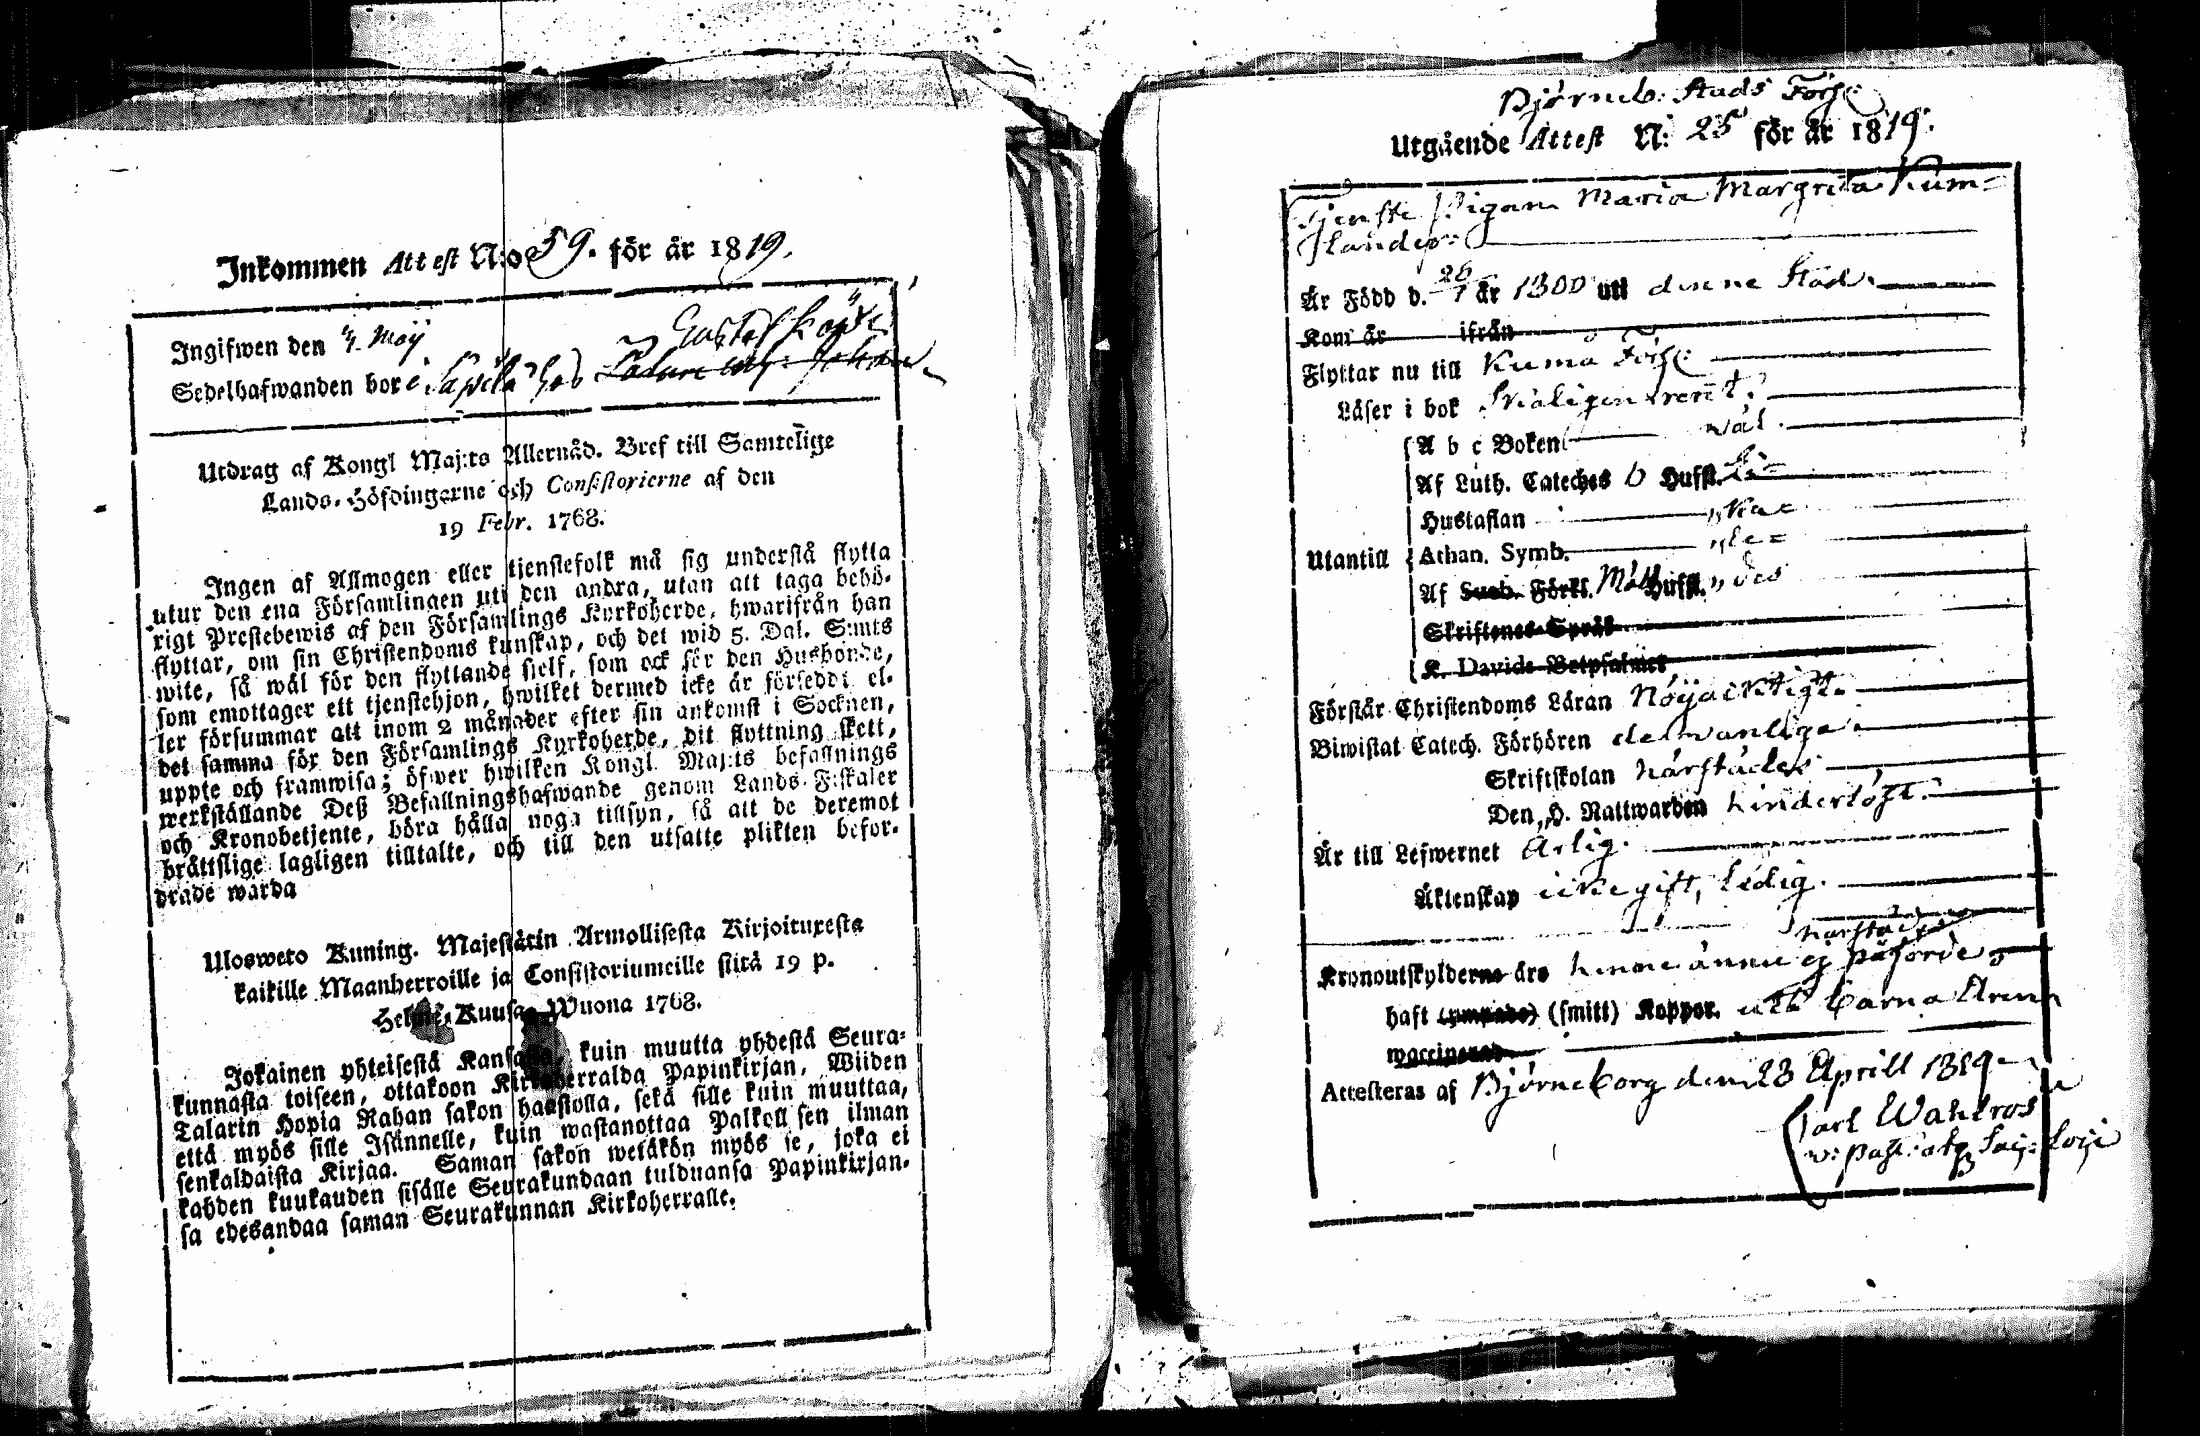 Inkommen Attest N:o 59. för år 1819.
Ingifwen den 4/7 Maÿ
Gustaf
Sedelhafwanden bor i hos
Utdrag af Kongl Maj:ts Allernåd. Bref till Samtelige
Lands-Höfdingarne och Consistorierne af den
19 Febr. 1768.
Ingen af Allmogen eller tjenstefolk må sig understå flytta
utur den ena Församlingen uti den andra, utan att taga behö-
rigt Prestebewis af den Församlings Kyrkoherde, hwarifrån han
flyttar, om sin Christendoms kunskap, och det wid 5. Dal. S:mts
wite, så wäl för den flyttande sielf, som ock för den Husbonde,
som emottager ett tjenstehjon, hwilket dermed icke är försedd: el-
ler försummar att inom 2 månader efter sin ankomst i Socknen,
det samma för den Församlings Kyrkoherde, dit flyttning skett,
uppte och framwisa; öfwer hwilken Kongl Maj:ts befallnings
werkställande Deß Befallningshafwande genom Lands-Fiskaler
och Kronobetjente, böra hålla noga tillsyn, så att de deremot
bråttslige lagligen tilltalte, och till den utsatte plikten befor-
drade warda
Ulosweto Kuning. Majestätin Armollisesta Kirjoituxesta
kaikille Maanherroille ja Consistoriumeille siitä 19 p.
Helmi-Kuusa Wuona 1768.
Jokainen yhteisestä Kansasta, kuin muutta yhdestä Seura-
kunnasta toiseen, ottakoon Kirkoherralda Papinkirjan, Wiiden
Talarin Hopia Rahan sakon haastolla, sekä sille kuin muuttaa,
että myös sille Isännelle, kuin wastanottaa Palkollisen ilman
senkaldaista Kirjaa. Saman sakon wetäkön myös se, joka ei
kahden kuukauden sisälle Seurakundaan tulduansa Papinkirjan-
sa edesandaa saman Seurakunnan Kirkoherralle.
Björneb: Stads Förs:
Utgående Attest N: 25 för år 1819.
Tjenste Pigan Maria Margrita Kum-
lander
Är Född d. 26/7 år 1800 uti denne Stad.
Kom år ifrån
Flyttar nu till Kumå Förs:
Läser i bok Skäligen rent.
A b c Boken wäl.
Af Luth. Cateches 6 Hufst. Li-
Hustaflan " ka-
Athan. Symb. " le-
Utantill
Af Sueb. Förkl. Hufst. " des
Skriftenes Språk
K. Davids Botpsalmer
Förstår Christendoms Läran Nöijacktigt.
Biwistat Catech. Förhören de wanlige
Skriftskolan härstädes
Den H. Nattwarden hinderlöst.
Är till Lefwernet Ärlig.
Äktenskap icke gift, Ledig.
härstädes
Kronoutskylderne äro henne ännu ej påförde
haft (ympade) (smitt) Koppor. uti Barna Åren
waccinerad
Attesteras af Björneborg den 28 Aprill 1819
Carl Wahlros